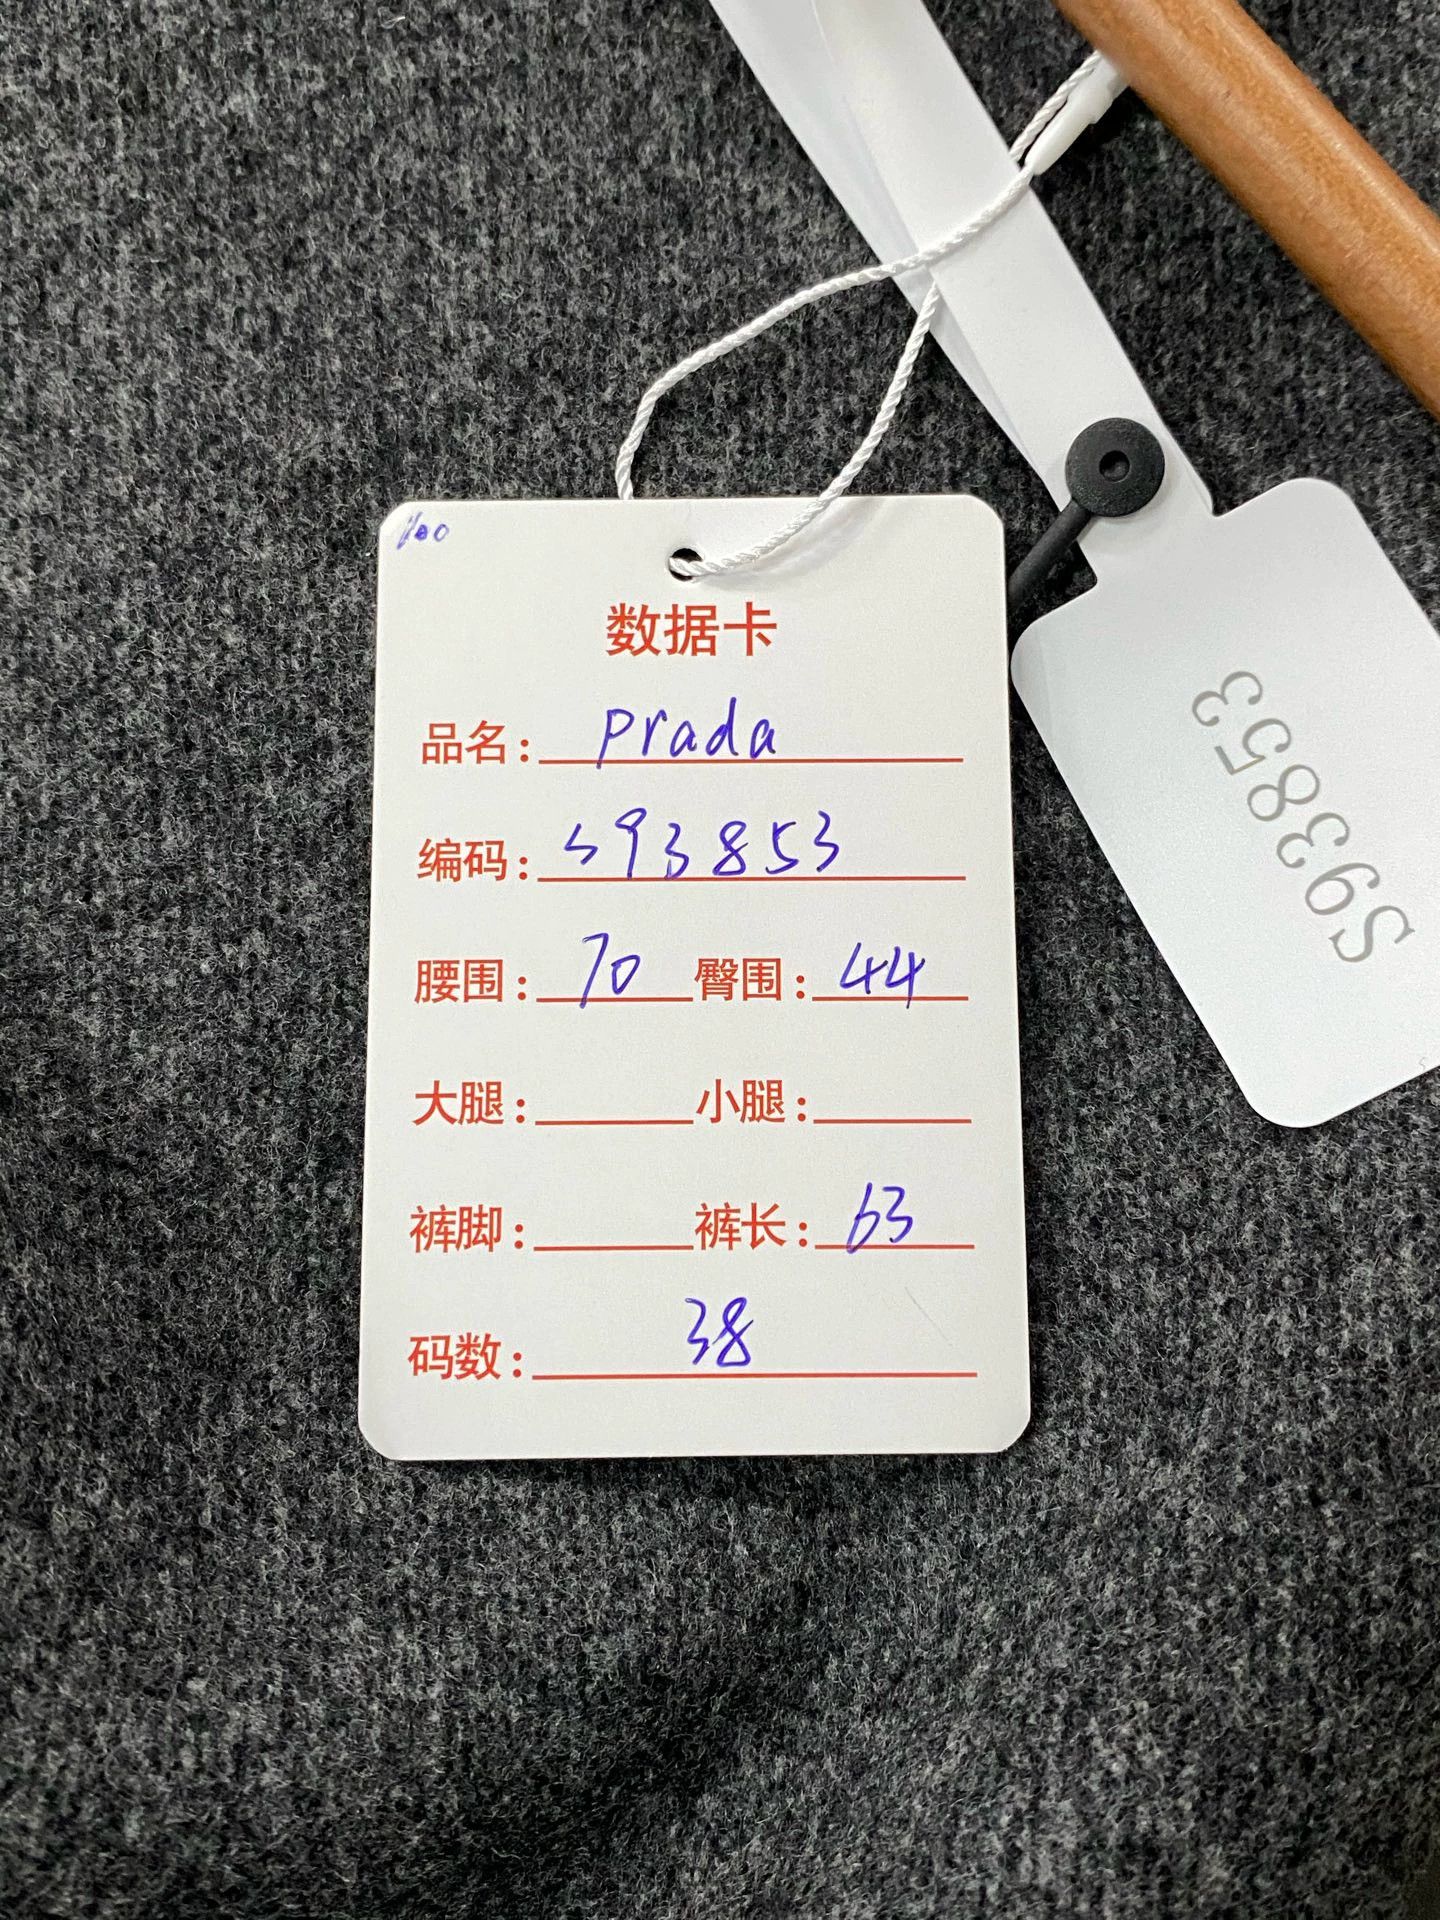 数据卡
品名: prada
编码: S93853
腰围: 70 臀围: 44
大腿: 小腿:
裤脚: 裤长: 63
码数: 38
S93853